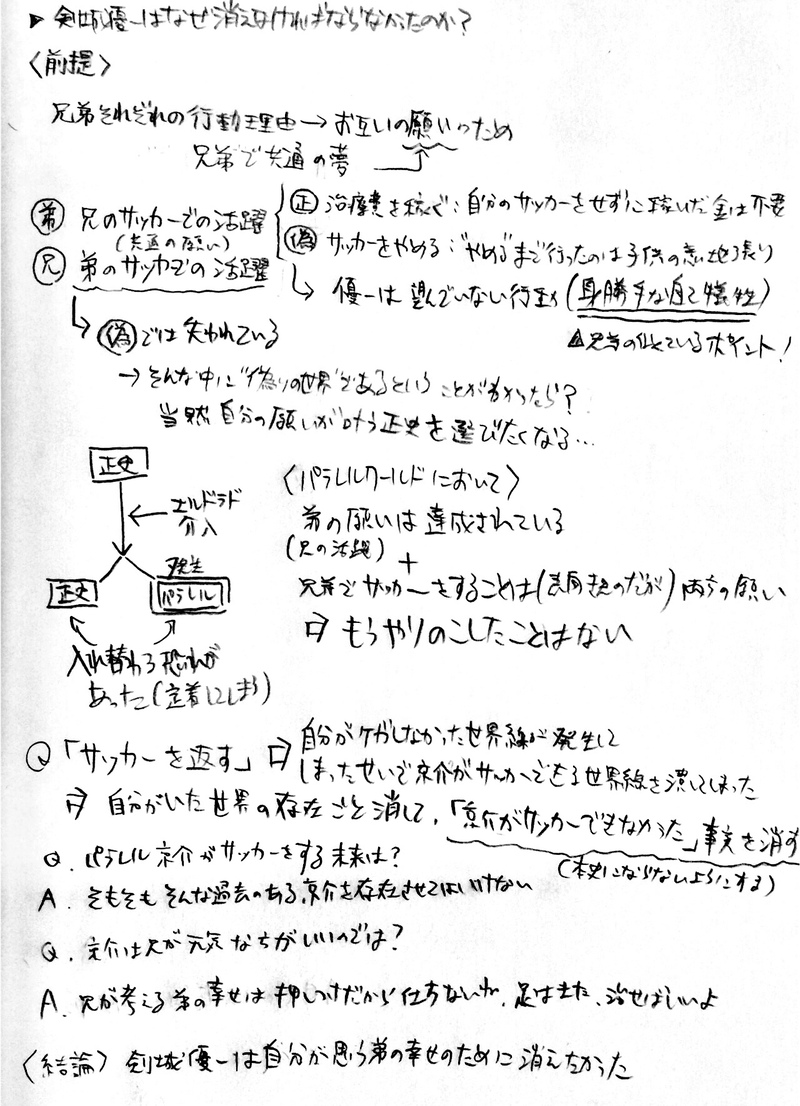 ▶ 剣城優一はなぜ消えなければならなかったのか?
〈前提〉
兄弟それぞれの行動理由→お互いの願いのため
兄弟で共通の夢
弟 兄のサッカーでの活躍
(共通の願い)
兄 弟のサッカーでの活躍
正 治療費を稼ぐ:自分のサッカーをせずに稼いだ金は不要
偽 サッカーをやめる:"やめる"まで行ったのは子供の意地っ張り
↳ 優一は望んでいない行動(身勝手な自己犠牲)
▲兄弟の似ているポイント!
↳ 偽では失われている
→そんな中に"偽りの世界"であるということが分かったら?
当然自分の願いが叶う正史を選びたくなる…
正史
← エルドラド
介入
発生
正史 パラレル
入れ替わる恐れが
あった(定着してしまう)
〈パラレルワールドにおいて〉
弟の願いは達成されている
(兄の活躍)
+
兄弟でサッカーをすることは(表向きのだが)両方の願い
⇒ もうやりのこしたことはない
Q 「サッカーを返す」⇒ 自分がケガしなかった世界線が発生して
しまったせいで京介がサッカーできる世界線を潰してしまった
⇒ 自分がいた世界の存在ごと消して、「京介がサッカーできなかった」事実を消す
(本史にならないようにする)
Q. パラレル京介がサッカーをする未来は?
A. そもそもそんな過去のある京介を存在させてはいけない
Q. 京介は兄が元気な方がいいのでは?
A. 兄が考える弟の幸せは押しつけだから仕方ないね、足はまた、治せばいいよ
〈結論〉 剣城優一は自分が思う弟の幸せのために消えたかった